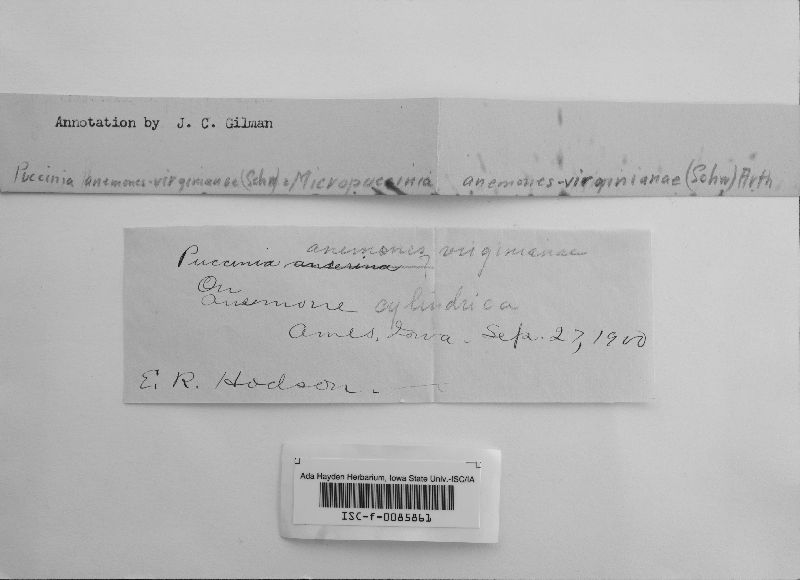 Annotation by J. C. Gilman
Puccinia anemones-virginianae (Schw) = Micropuccinia anemones-virginianae (Schw) Arth
anemones virginianae
Puccinia
On
anemone cylindrica
Ames, Iowa. Sep. 27, 1900
E. R. Hodson.
Ada Hayden Herbarium, Iowa State Univ.-ISC/IA
ISC-f-0085861